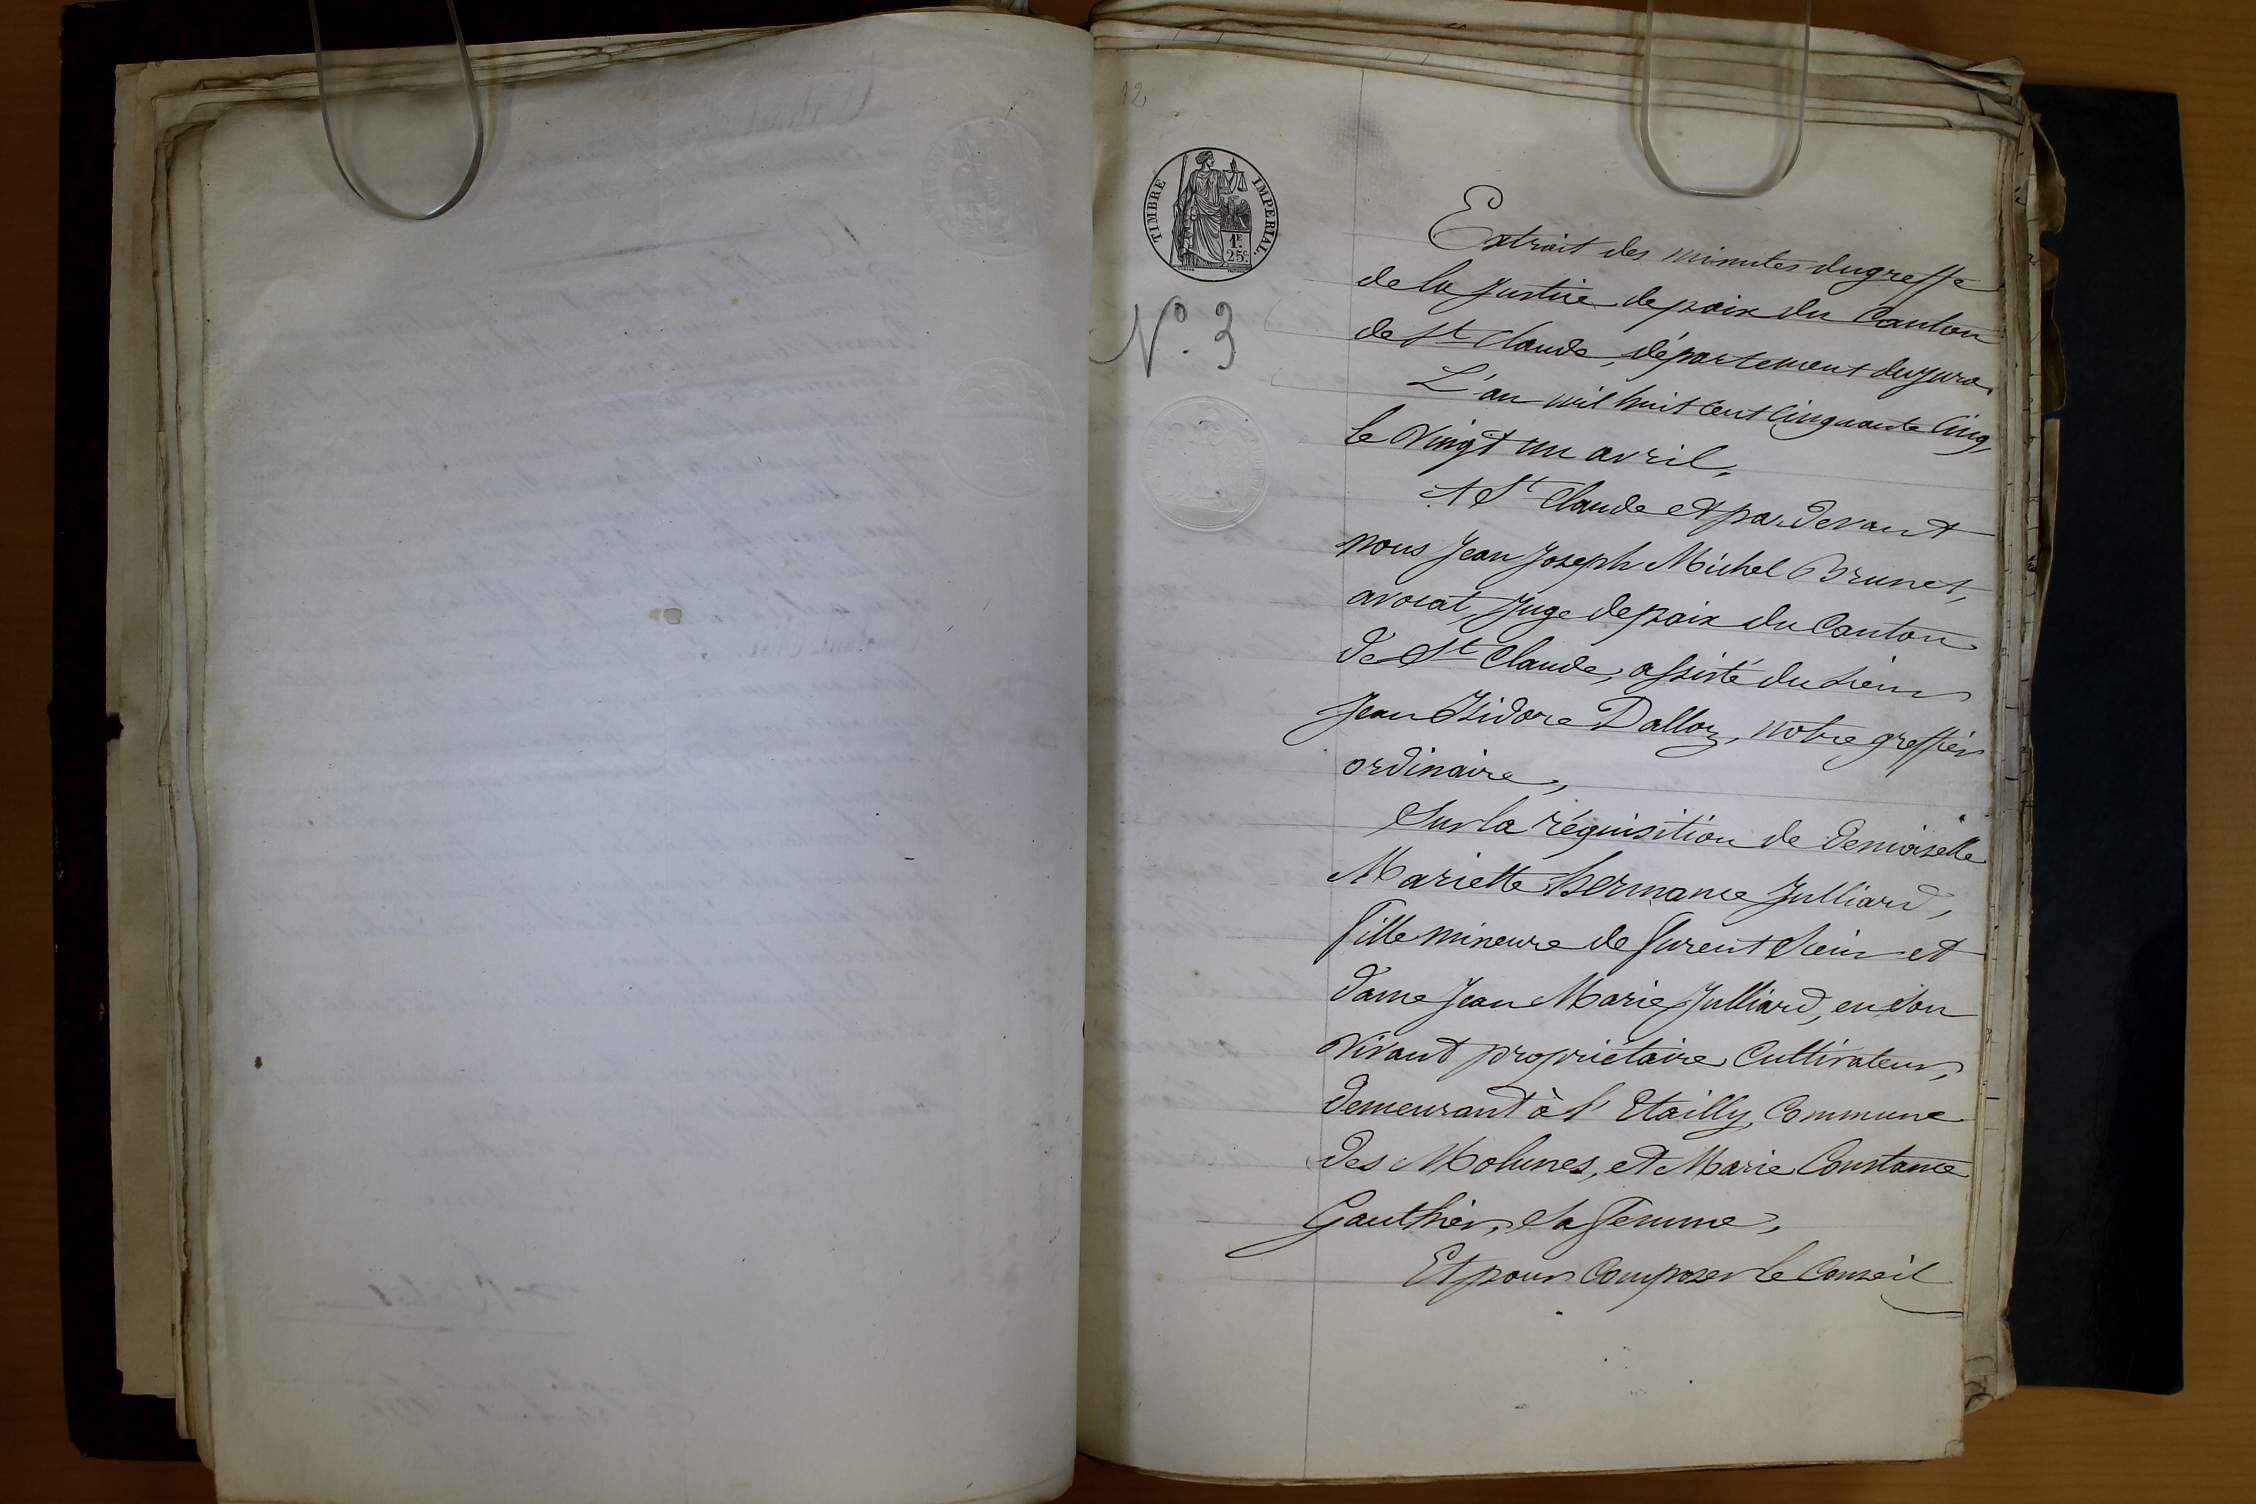 12
TIMBRE IMPERIAL.
1F.
25c.
N.o 3
Extrait des minutes du greffe
de la Justice de paix du Canton
de St Claude, département du Jura.
L'an mil huit cent cinquante cinq,
le vingt un avril,
A St Claude et par devant
nous Jean Joseph Michel Brunet,
avocat, Juge de paix du Canton
de St Claude, assisté du sieur
Jean Isidore Dalloz, notre greffier
ordinaire,
Sur la réquisition de demoiselle
Mariette hermance Julliard,
fille mineure de furent Sieur et
dame Jean Marie Julliard, en son
vivant propriétaire cultivateur,
demeurant à l'Etailly, Commune
des Molunes, et Marie Constance
Gauthier, sa femme,
Et pour composer le Conseil